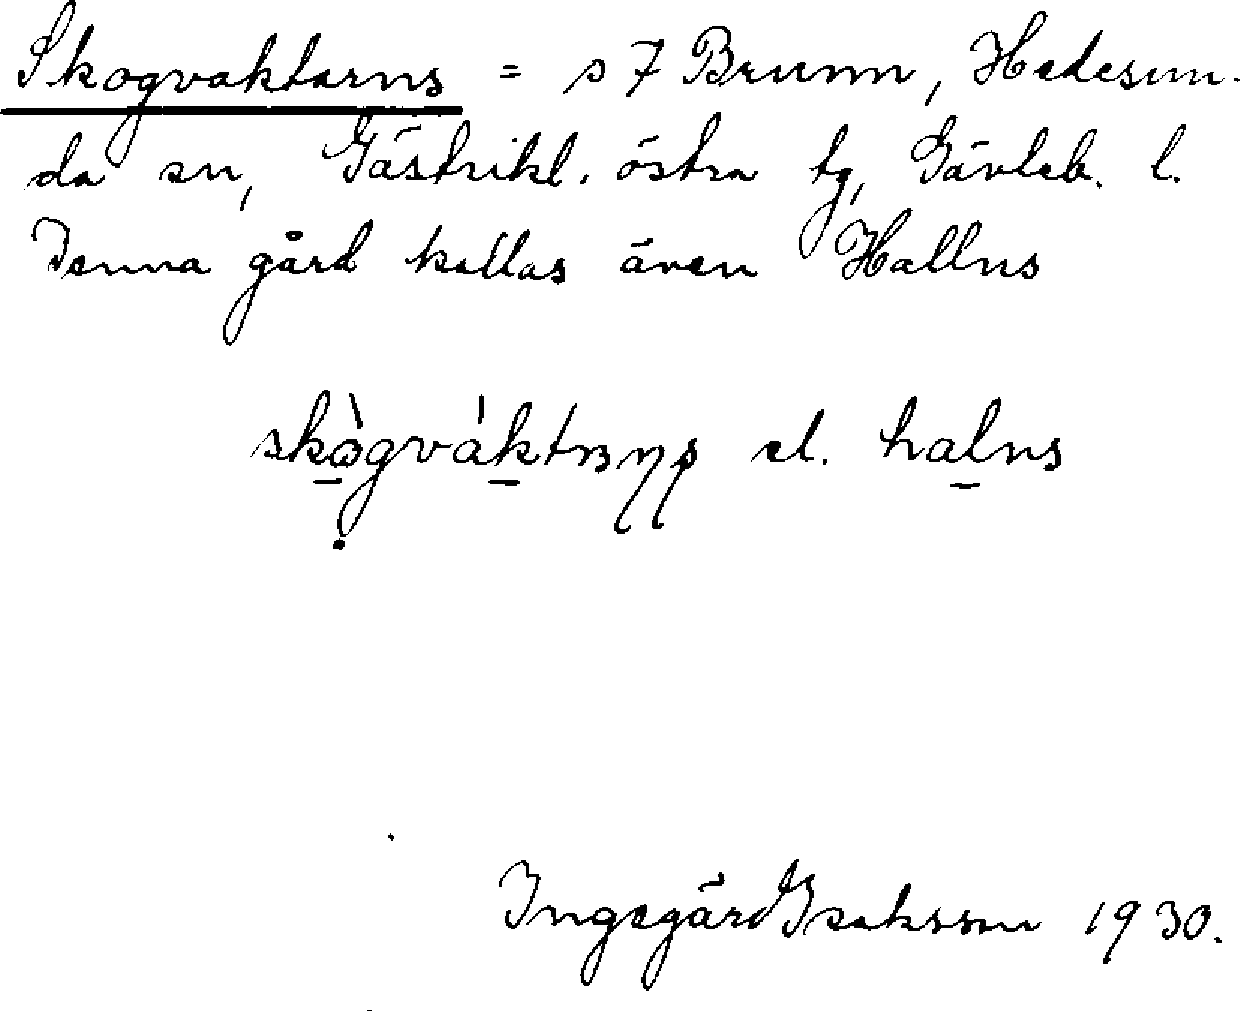 Skogvaktarns = s 7 Brunn, Hedesun-
da sn, Gästrikl. östra tg, Gävleb. l.
Denna gård kallas även Hallns
el. halns
Ingegärd Isaksson 1930.